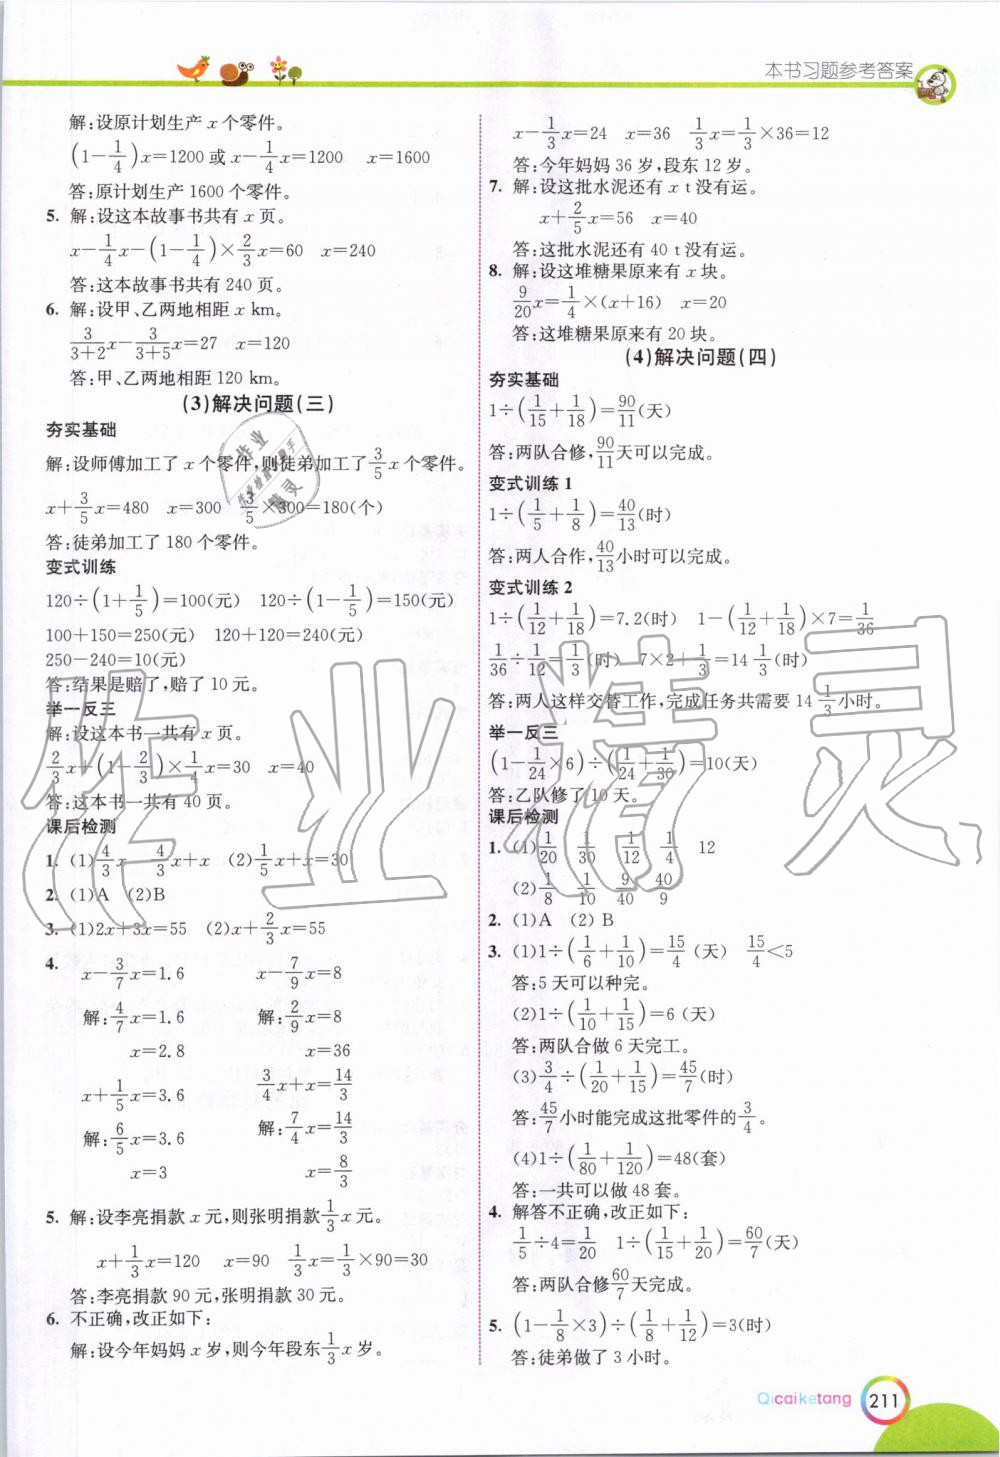 本书习题参考答案
解:设原计划生产 x 个零件。
(1-1/4)x=1200 或 x-1/4x=1200 x=1600
答:原计划生产 1600 个零件。
5. 解:设这本故事书共有 x 页。
x-1/4x-(1-1/4)×2/3x=60 x=240
答:这本故事书共有 240 页。
6. 解:设甲、乙两地相距 x km。
3/(3+2)x-3/(3+5)x=27 x=120
答:甲、乙两地相距 120 km。
(3)解决问题(三)
夯实基础
解:设师傅加工了 x 个零件,则徒弟加工了3/5x 个零件。
x+3/5x=480 x=300 3/5×300=180(个)
答:徒弟加工了 180 个零件。
变式训练
120÷(1+1/5)=100(元) 120÷(1-1/5)=150(元)
100+150=250(元) 120+120=240(元)
250-240=10(元)
答:结果是赔了,赔了 10 元。
举一反三
解:设这本书一共有 x 页。
2/3x+(1-2/3)×1/4x=30 x=40
答:这本书一共有 40 页。
课后检测
1. (1)4/3x 4/3x+x (2)1/5x+x=30
2. (1)A (2)B
3. (1)2x+3x=55 (2)x+2/3x=55
4. x-3/7x=1.6 x-7/9x=8
解:4/7x=1.6 解:2/9x=8
x=2.8 x=36
x+1/5x=3.6 3/4x+x=14/3
解:6/5x=3.6 解:7/4x=14/3
x=3 x=8/3
5. 解:设李亮捐款 x 元,则张明捐款1/3x 元。
x+1/3x=120 x=90 1/3x=1/3×90=30
答:李亮捐款 90 元,张明捐款 30 元。
6. 不正确,改正如下:
解:设今年妈妈 x 岁,则今年段东1/3x 岁。
x-1/3x=24 x=36 1/3x=1/3×36=12
答:今年妈妈 36 岁,段东 12 岁。
7. 解:设这批水泥还有 x t 没有运。
x+2/5x=56 x=40
答:这批水泥还有 40 t 没有运。
8. 解:设这堆糖果原来有 x 块。
9/20x=1/4×(x+16) x=20
答:这堆糖果原来有 20 块。
(4)解决问题(四)
夯实基础
1÷(1/15+1/18)=90/11(天)
答:两队合修,90/11天可以完成。
变式训练 1
1÷(1/5+1/8)=40/13(时)
答:两人合作,40/13小时可以完成。
变式训练 2
1÷(1/12+1/18)=7.2(时) 1-(1/12+1/18)×7=1/36
1/36÷1/12=1/3(时) 7×2+1/3=14 1/3(时)
答:两人这样交替工作,完成任务共需要 14 1/3小时。
举一反三
(1-1/24×6)÷(1/24+1/30)=10(天)
答:乙队修了 10 天。
课后检测
1. (1)1/20 1/30 1/12 1/4 12
(2)1/8 1/10 9/40 40/9
2. (1)A (2) B
3. (1)1÷(1/6+1/10)=15/4(天) 15/4<5
答:5 天可以种完。
(2)1÷(1/10+1/15)=6(天)
答:两队合做 6 天完工。
(3)3/4÷(1/20+1/15)=45/7(时)
答:45/7小时能完成这批零件的3/4。
(4)1÷(1/80+1/120)=48(套)
答:一共可以做 48 套。
4. 解答不正确,改正如下:
1/5÷4=1/20 1÷(1/15+1/20)=60/7(天)
答:两队合修60/7天完成。
5. (1-1/8×3)÷(1/8+1/12)=3(时)
答:徒弟做了 3 小时。
Qicaiketang 211
作业精灵